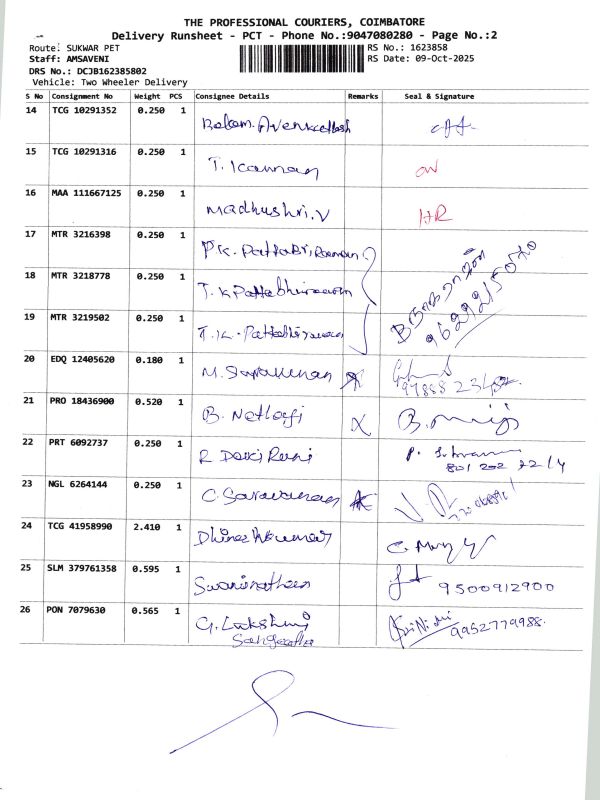 THE PROFESSIONAL COURIERS, COIMBATORE
Delivery Runsheet - PCT - Phone No.:9047080280 - Page No.:2
Route: SUKWAR PET RS No.: 1623858
Staff: AMSAVENI RS Date: 09-Oct-2025
DRS No.: DCJB162385802
Vehicle: Two Wheeler Delivery
S No Consignment No Weight PCS Consignee Details Remarks Seal & Signature
14 TCG 10291352 0.250 1
15 TCG 10291316 0.250 1 T. Kannan
16 MAA 111667125 0.250 1 Madhushri.V HR
17 MTR 3216398 0.250 1 P.K. Pattabiraman
18 MTR 3218778 0.250 1 T. K Pattabhiraman
19 MTR 3219502 0.250 1 T.K. Pattabhiraman
20 EDQ 12405620 0.180 1 M. Saravanan
21 PRO 18436900 0.520 1 B. Netlaji X
22 PRT 6092737 0.250 1 R Devi Rani 801 202 2214
23 NGL 6264144 0.250 1 C. Saravanan
24 TCG 41958990 2.410 1 Dhineshkumar
25 SLM 379761358 0.595 1 Swaminathan 9500912900
26 PON 7079630 0.565 1 G. Lakshmi 9952779988
Sangeetha